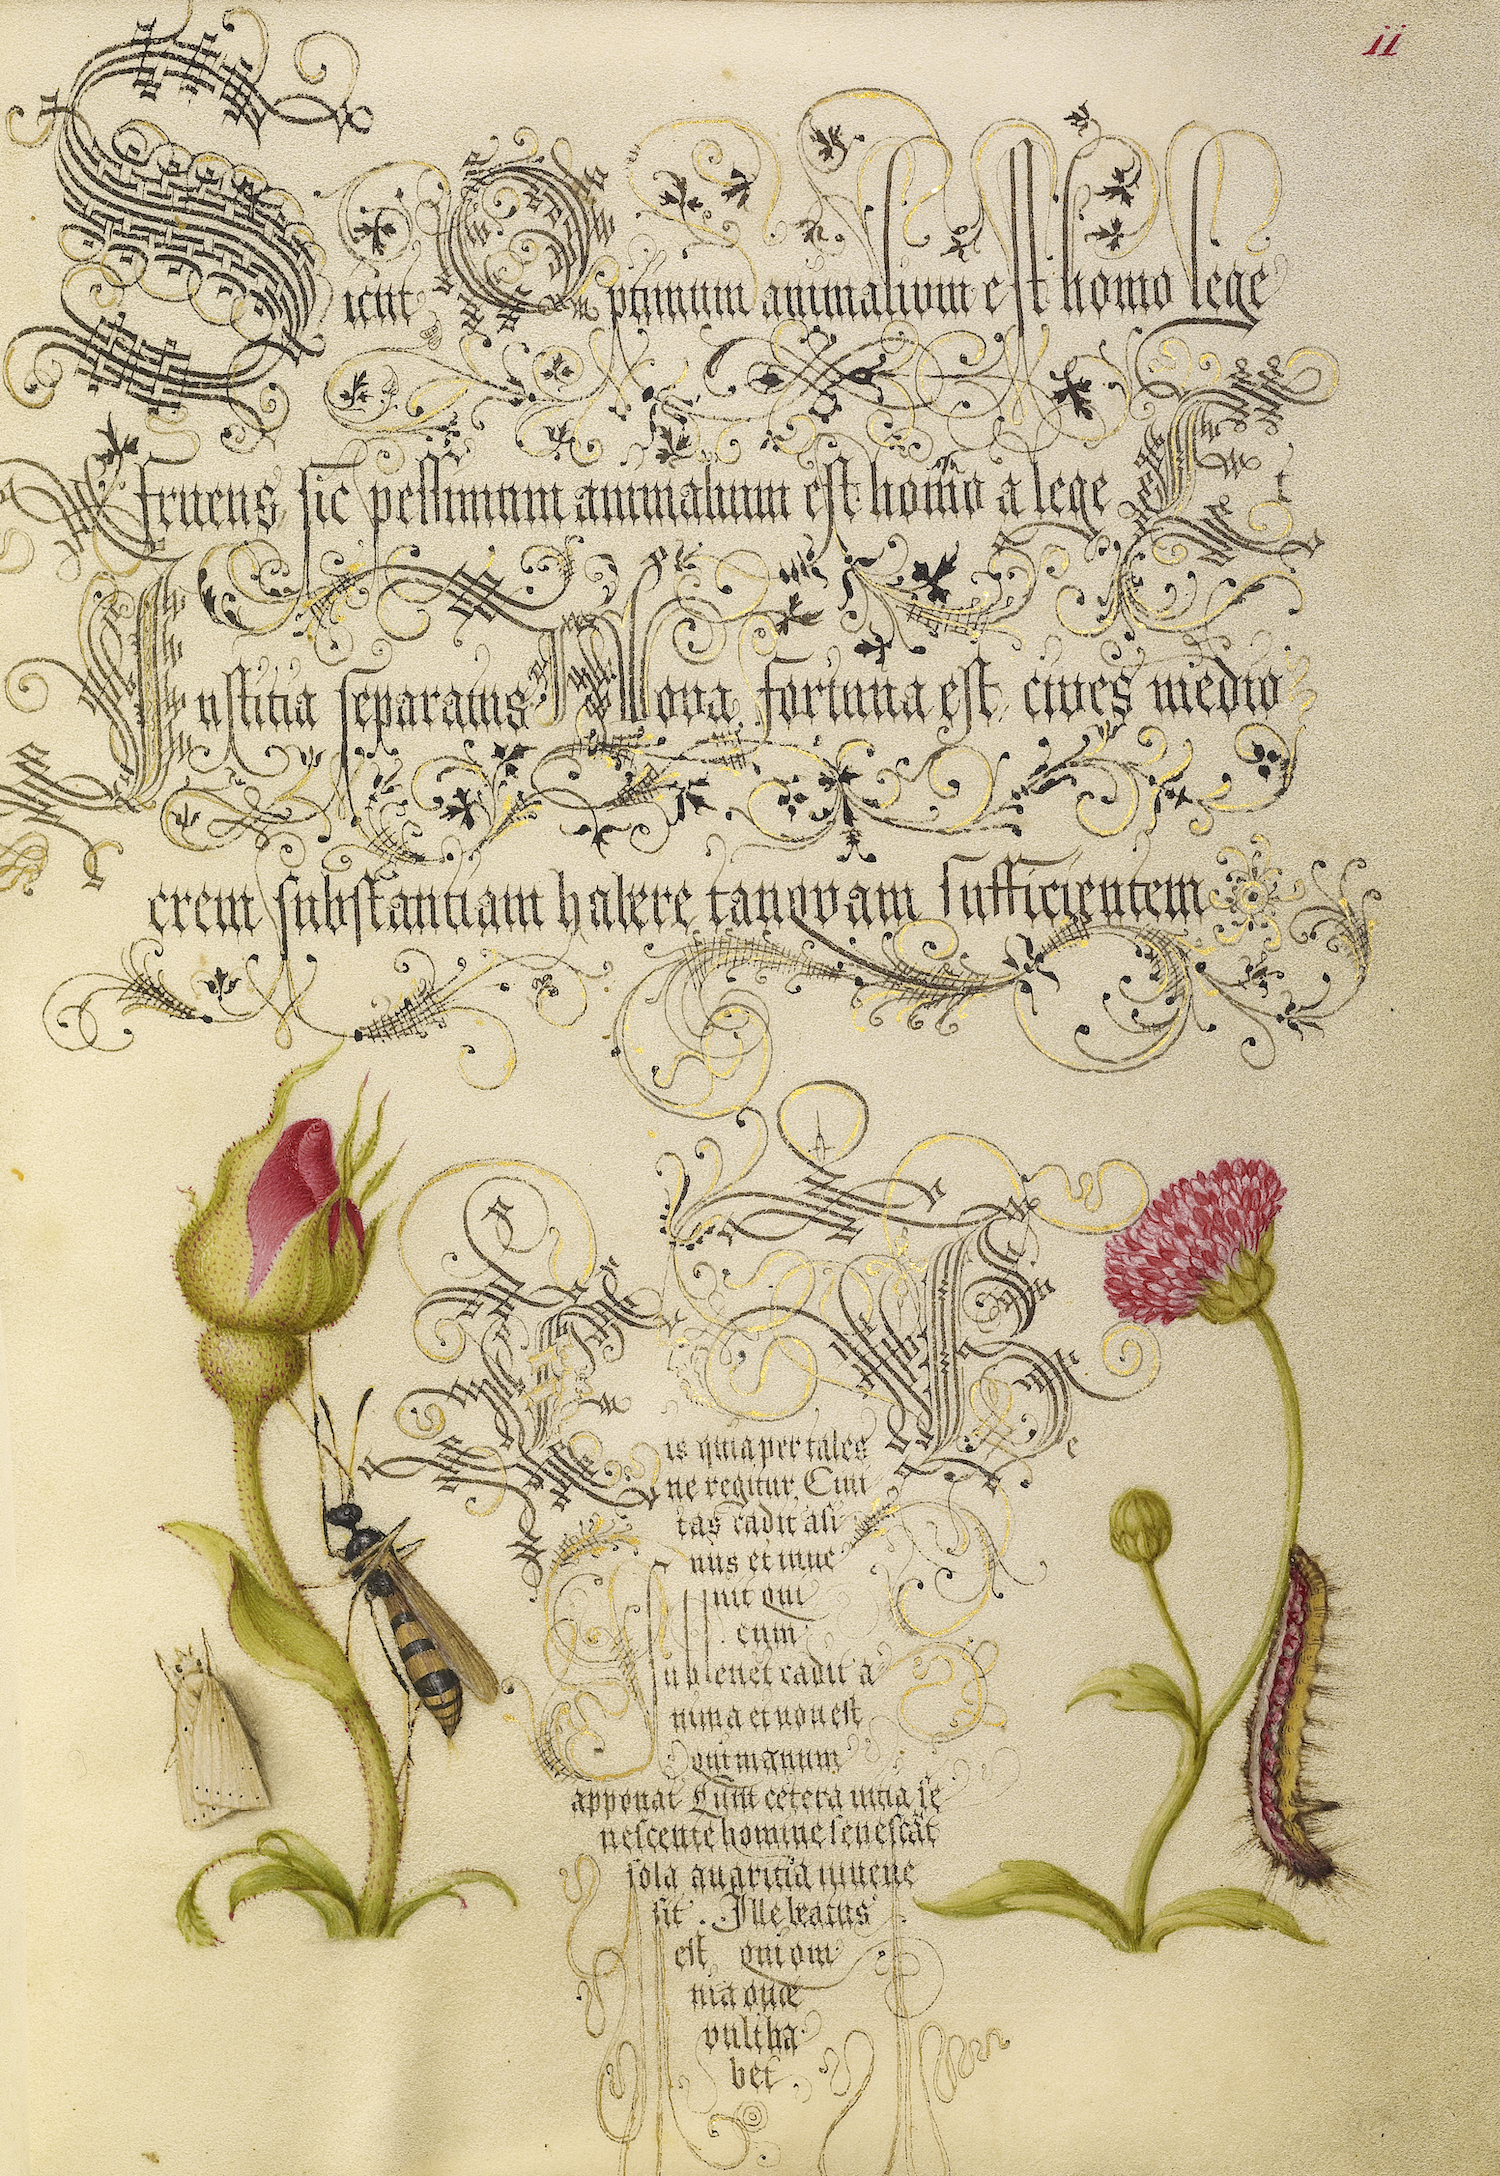 ii
Sicut Optimum animalium est homo lege
fruens sic pessimum animalium est homo a lege et
Iustitia separatus Bona fortuna est cives medio
crem substantiam habere tanqvam sufficientem
is quia per tales Re
ne regitur. Civi
tas cadit asi
nus et inve
nit qui
cum
sublevet cadit a
nima et non est
qui manum
apponat Cum cetera vitia se
nescente homine senescāt
sola avaritia iuvene
sit. Ille beatus
est qui om
nia quæ
vult ha
bet.